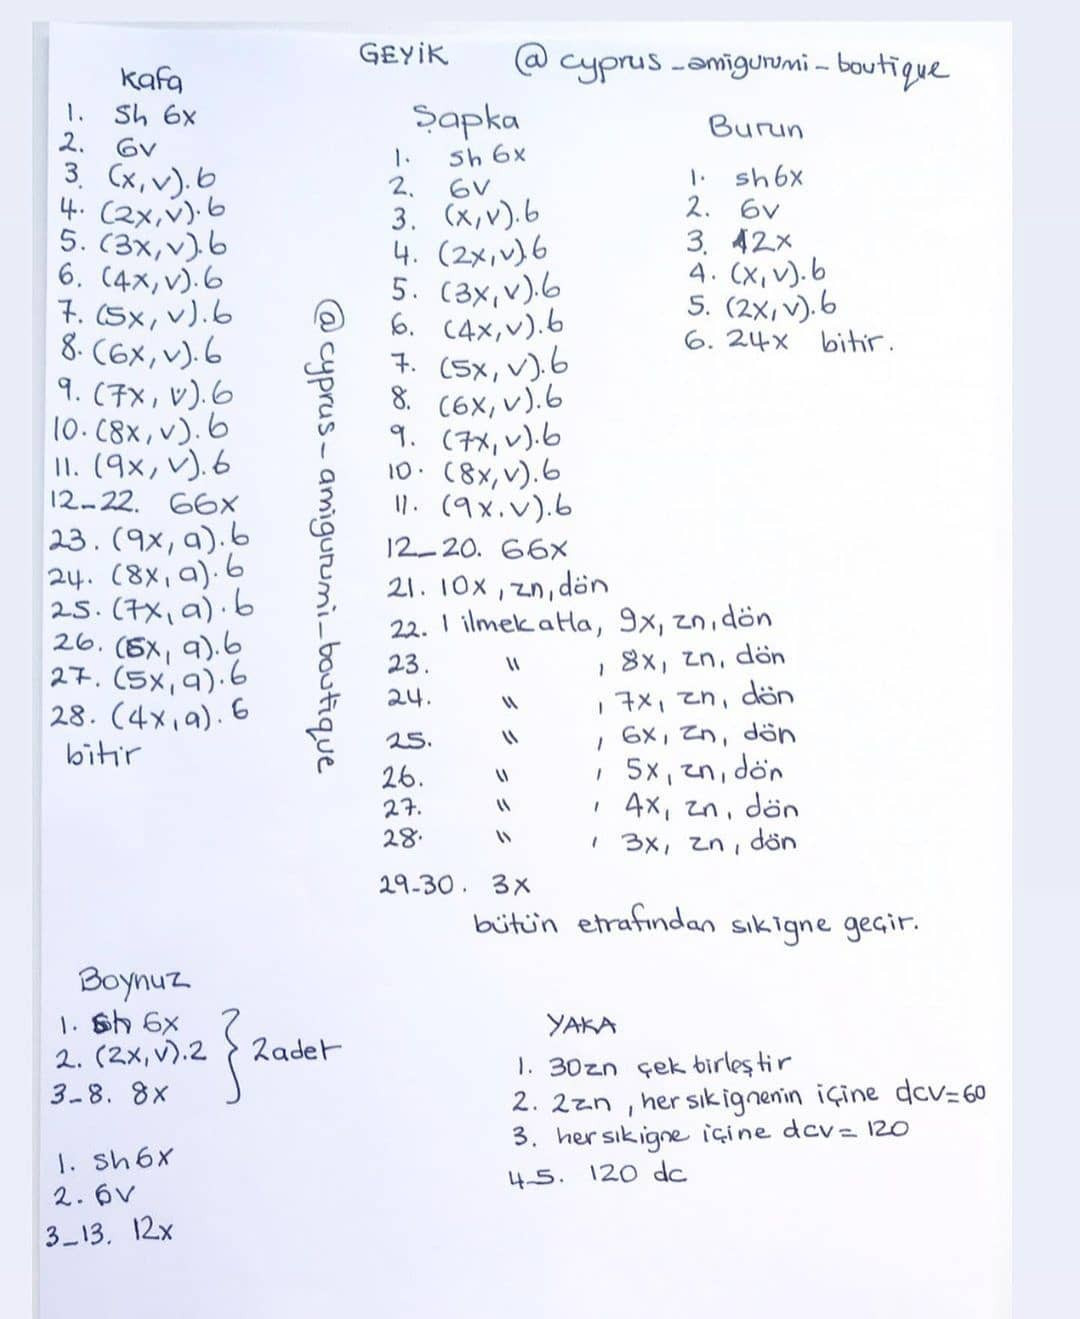 GEYİK @cyprus_amigurumi_boutique
Kafa
1. Sh 6x
2. 6v
3. (x,v).6
4. (2x,v).6
5. (3x,v).6
6. (4x,v).6
7. (5x,v).6
8. (6x,v).6
9. (7x,v).6
10. (8x,v).6
11. (9x,v).6
12-22. 66x
23. (9x,a).6
24. (8x,a).6
25. (7x,a).6
26. (6x,a).6
27. (5x,a).6
28. (4x,a).6
bitir
@cyprus_amigurumi_boutique
Şapka
1. sh 6x
2. 6v
3. (x,v).6
4. (2x,v).6
5. (3x,v).6
6. (4x,v).6
7. (5x,v).6
8. (6x,v).6
9. (7x,v).6
10. (8x,v).6
11. (9x.v).6
12-20. 66x
21. 10x, zn, dön
22. 1 ilmek atla, 9x, zn, dön
23. " , 8x, zn, dön
24. " , 7x, zn, dön
25. " , 6x, zn, dön
26. " , 5x, zn, dön
27. " , 4x, zn, dön
28. " , 3x, zn, dön
29-30. 3x
bütün etrafından sıkigne geçir.
Burun
1. sh6x
2. 6v
3. 12x
4. (x,v).6
5. (2x,v).6
6. 24x bitir.
Boynuz
1. sh 6x
2. (2x,v).2 } 2adet
3-8. 8x
1. sh6x
2. 6v
3-13. 12x
YAKA
1. 30zn çek birleştir
2. 2zn, her sıkignenin içine dcv=60
3. her sıkigne içine dcv= 120
4-5. 120 dc